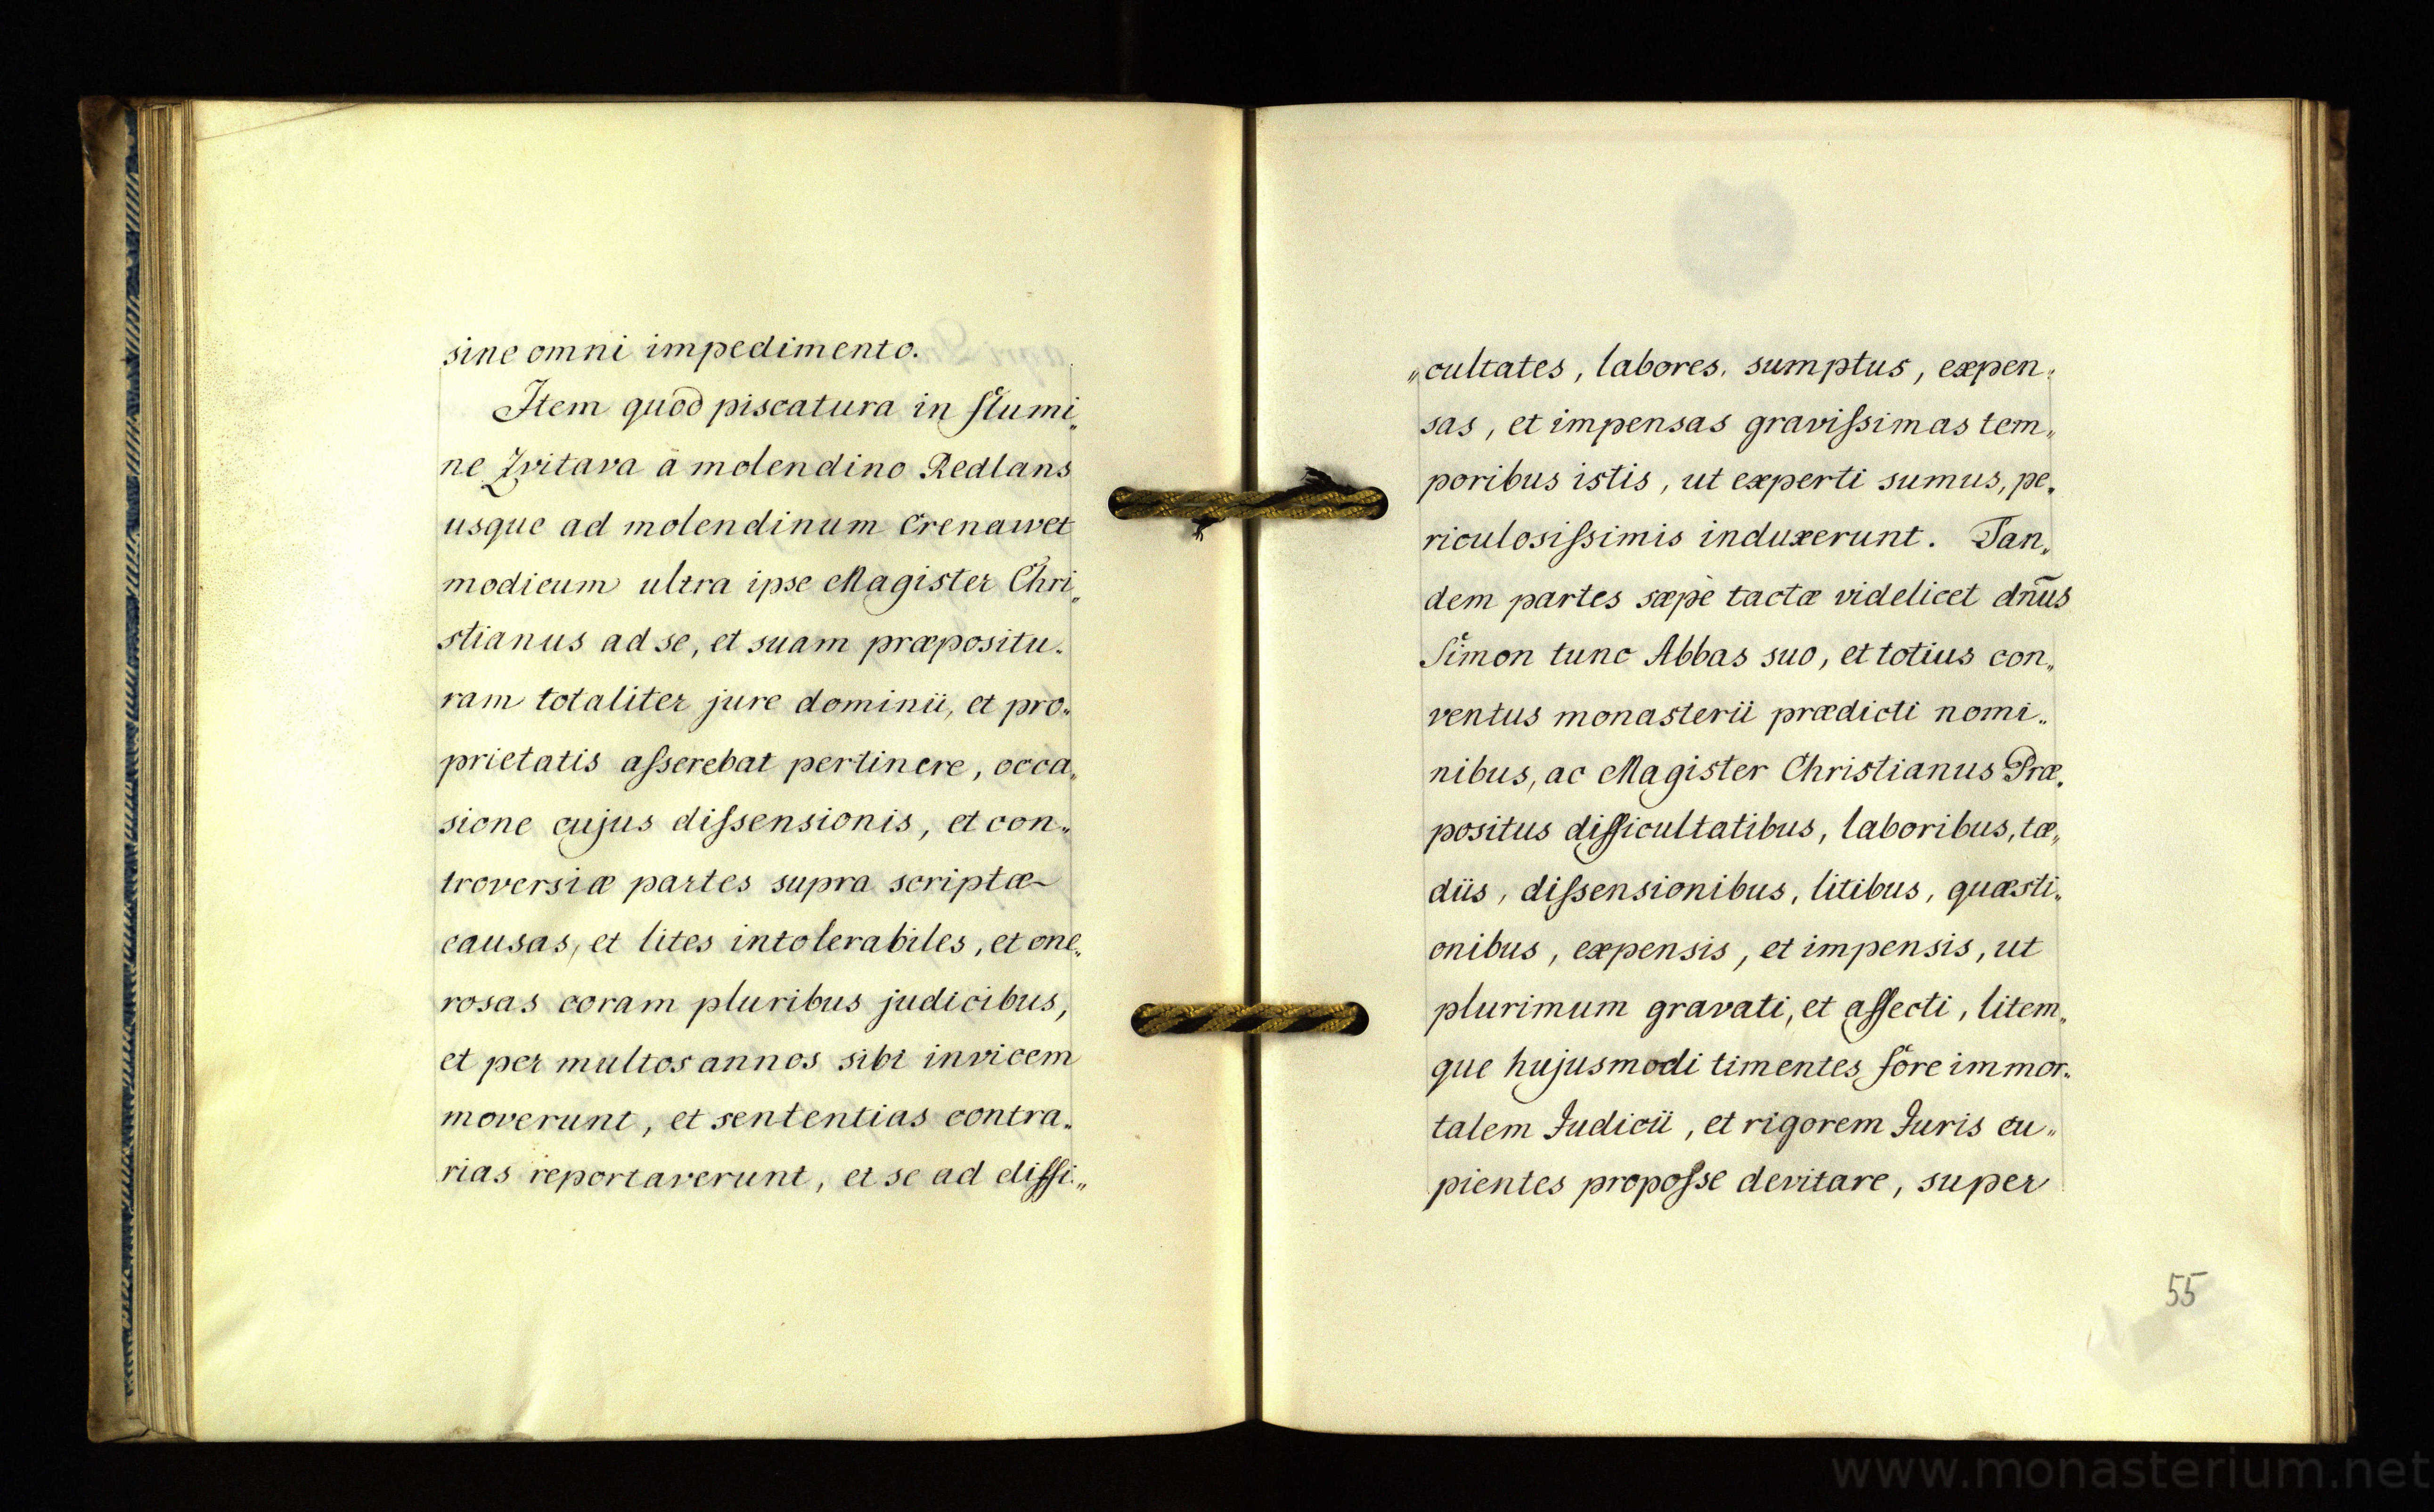 sine omni impedimento.
Item quòd piscatura in flumi„
ne Zvitava à molendino Redlans
usque ad molendinum Crenawet
modicum ultra ipse Magister Chri„
stianus ad se, et suam præpositu„
ram totaliter jure dominii, et pro„
prietatis aſserebat pertinere, occa„
sione cujus diſsensionis, et con„
troversiæ partes supra scriptæ
causas, et lites intolerabiles, et one„
rosas coram pluribus judicibus,
et per multos annos sibi invicem
moverunt, et sententias contra„
rias reportaverunt, et se ad diffi„
„cultates, labores, sumptus, expen„
sas, et impensas graviſsimas tem„
poribus istis, ut experti sumus, pe„
riculosiſsimis induxerunt. Tan„
dem partes sæpè tactæ videlicet dn̅us
Simon tunc Abbas suo, et totius con„
ventus monasterii prædicti nomi„
nibus, ac Magister Christianus Præ„
positus difficultatibus, laboribus, tæ„
diis, diſsensionibus, litibus, quæsti„
onibus, expensis, et impensis, ut
plurimum gravati, et affecti, litem„
que hujusmodi timentes fore immor„
talem Judicii, et rigorem Juris cu„
pientes propoſse devitare, super
55
www.monasterium.net